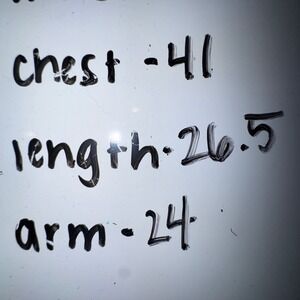 chest - 41
length - 26.5
arm - 24